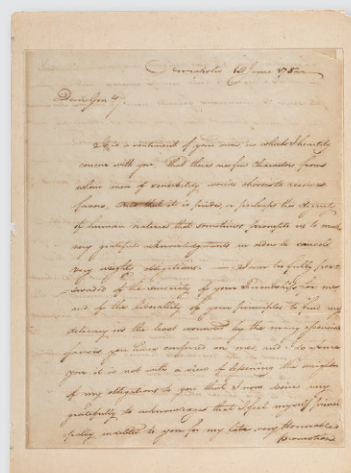 June 1782
Dear Gen.
It is a sentiment of your own, in which I heartily
concur with you. That there are few characters from
whom men of sensibility would choose to receive
favors, that it is pride, or perhaps the dignity
of human nature that sometimes prompts us to make
very grateful acknowledgments in order to cancel
very weighty obligations. — I am so fully per-
suaded of the sincerity of your friendship for me
and of the liberality of your principles to feel my
delicacy in the least wounded by the many
favors you have conferred on me, and I do assure
you it is not with a view of lessening the weight
of my obligations to you that I now desire very
gratefully to acknowledge that I feel myself princi-
pally indebted to you for my late very Honorable
promotion